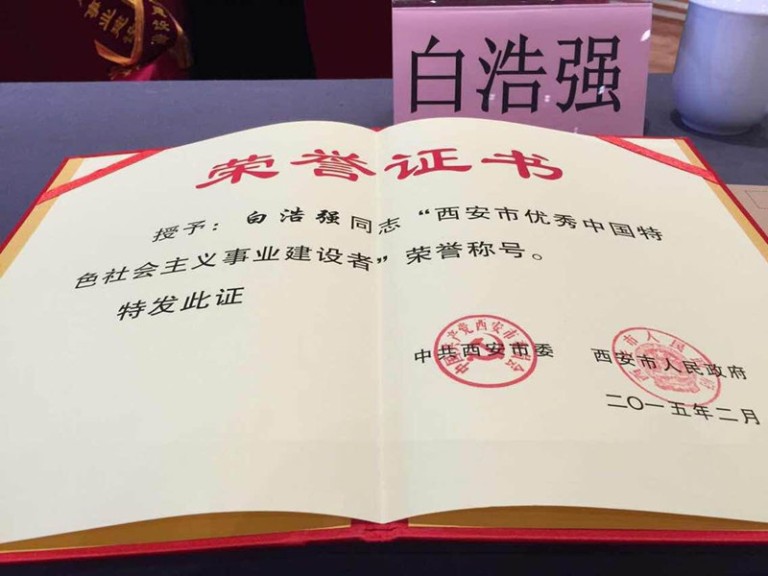 白浩强
荣誉证书
授予：白浩强同志“西安市优秀中国特
色社会主义事业建设者”荣誉称号。
特发此证
中共西安市委 西安市人民政府
中国共产党西安市委员会
二〇一五年二月